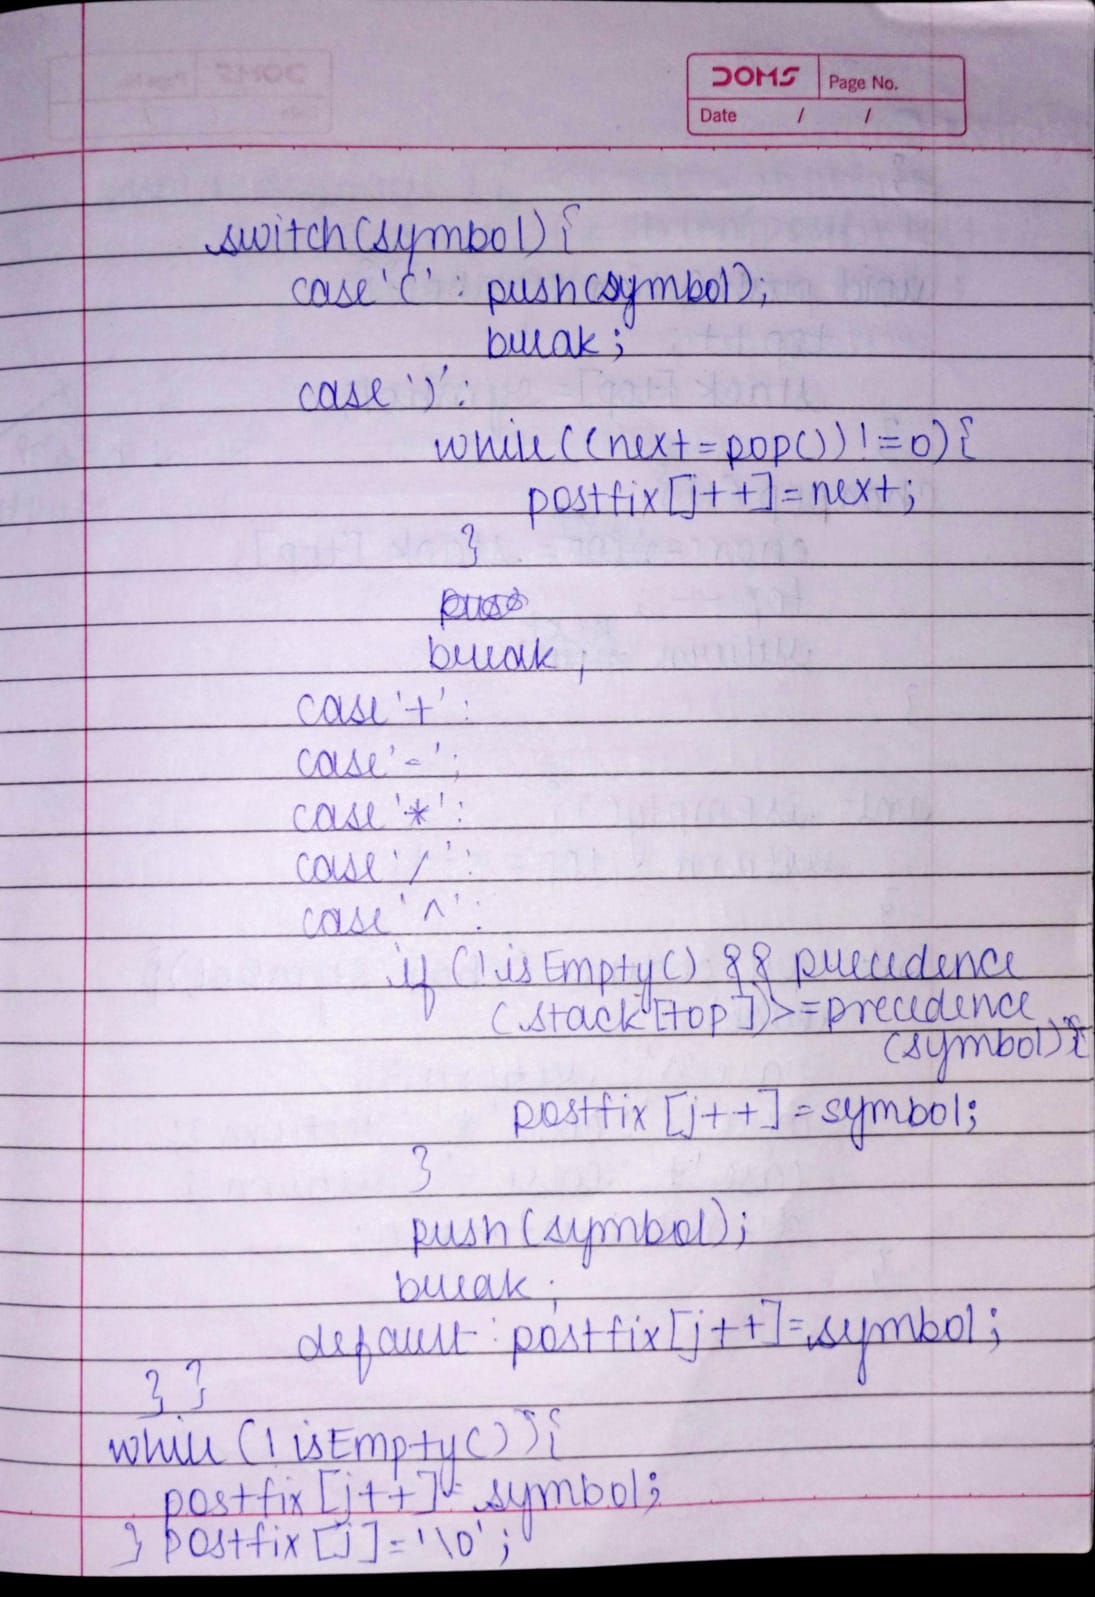 DOMS Page No.
Date / /
switch(symbol){
case '(' : push(symbol);
break;
case ')':
while((next=pop())!=0){
postfix[j++]=next;
}
break;
case '+':
case '-';
case '*':
case '/':
case '^':
if (!isEmpty() && precedence
(stack[top])>=precedence
(symbol){
postfix[j++]=symbol;
}
push(symbol);
break;
default: postfix[j++]=symbol;
} }
while (!isEmpty()){
postfix[j++]=symbol;
} postfix[j]='\0';